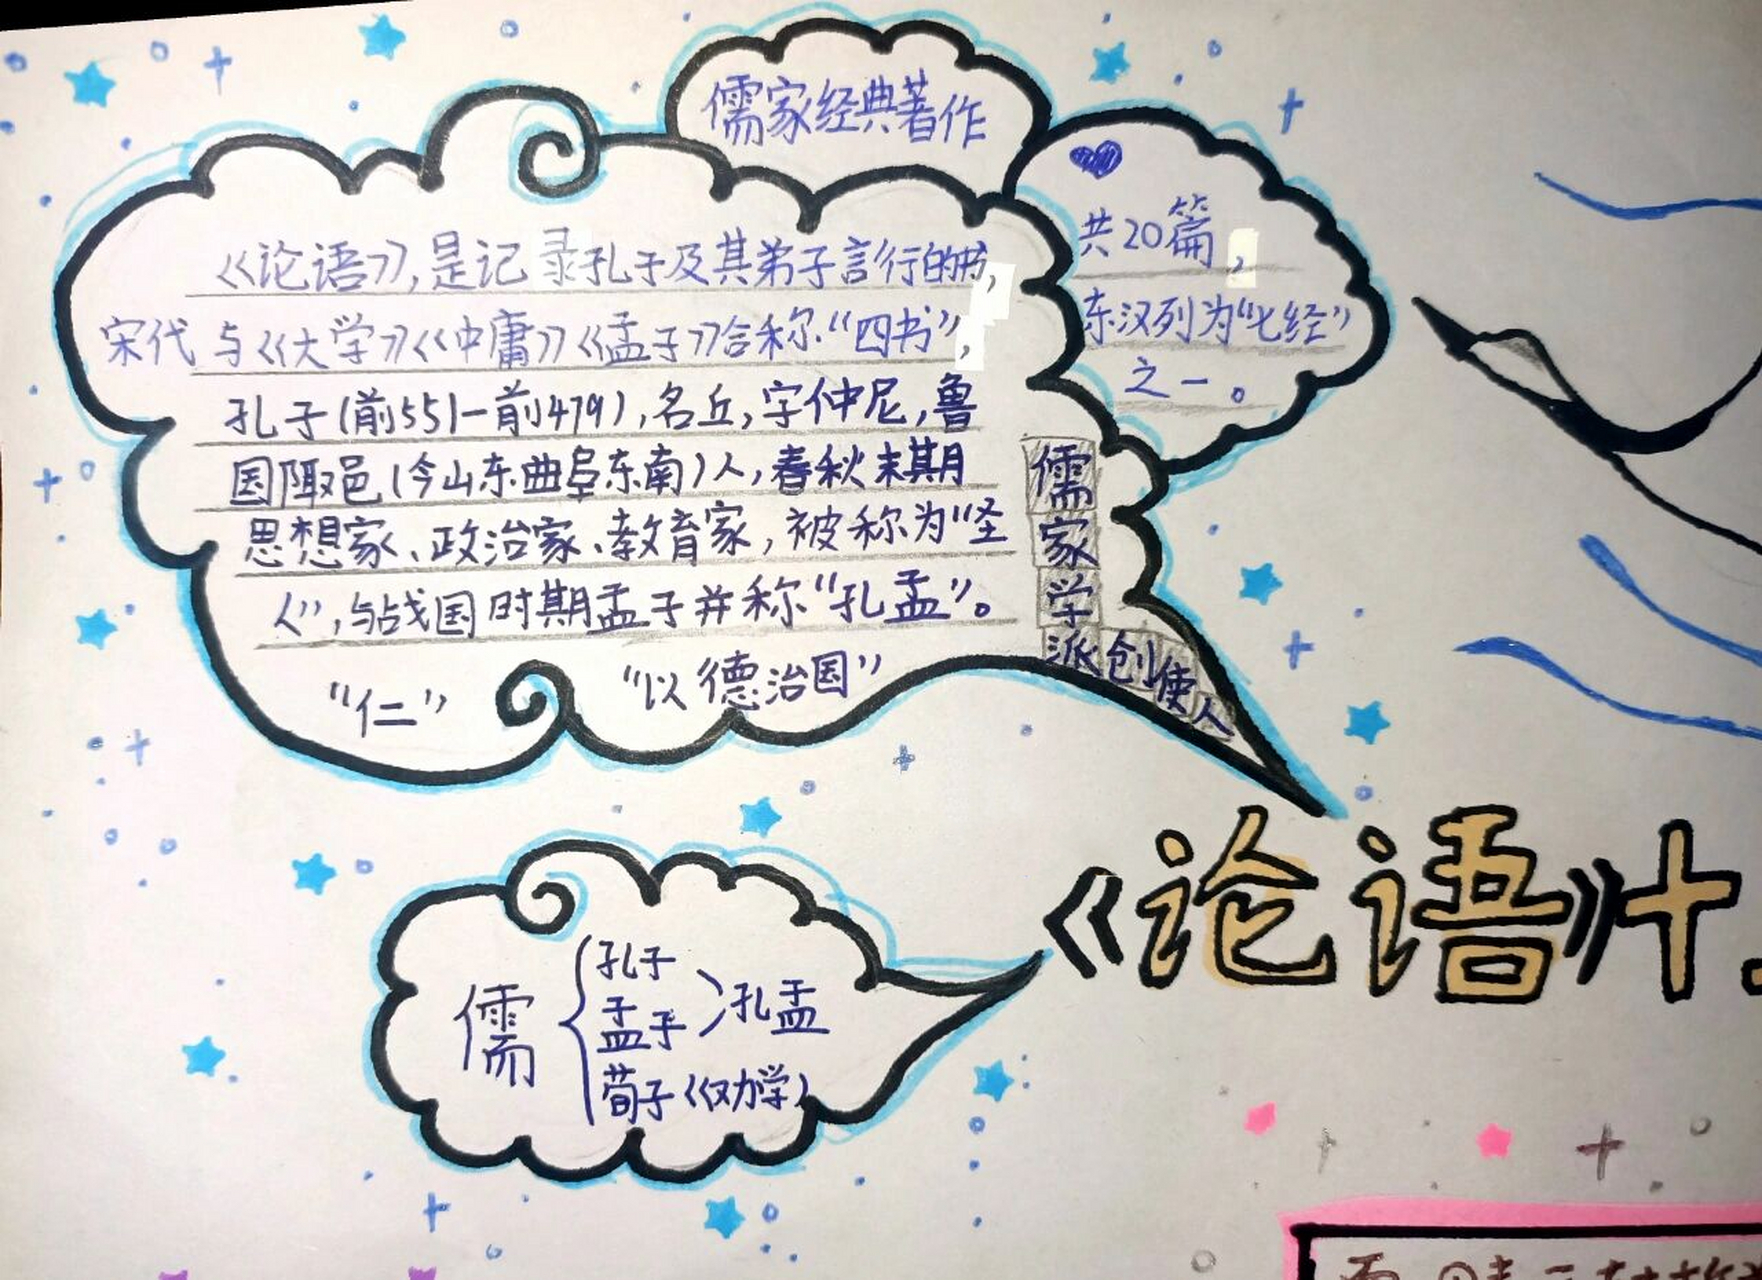 儒家经典著作
《论语》,是记录孔子及其弟子言行的书,
宋代与《大学》《中庸》《孟子》合称“四书”,
孔子(前551-前479),名丘,字仲尼,鲁
国陬邑(今山东曲阜东南)人,春秋末期
思想家、政治家、教育家,被称为“圣
人”,与战国时期孟子并称“孔孟”。
“仁” “以德治国”
共20篇,
东汉列为“七经”
之一。
儒家学派创使人
《论语》十
儒
孔子
孟子
孔孟
荀子《劝学》